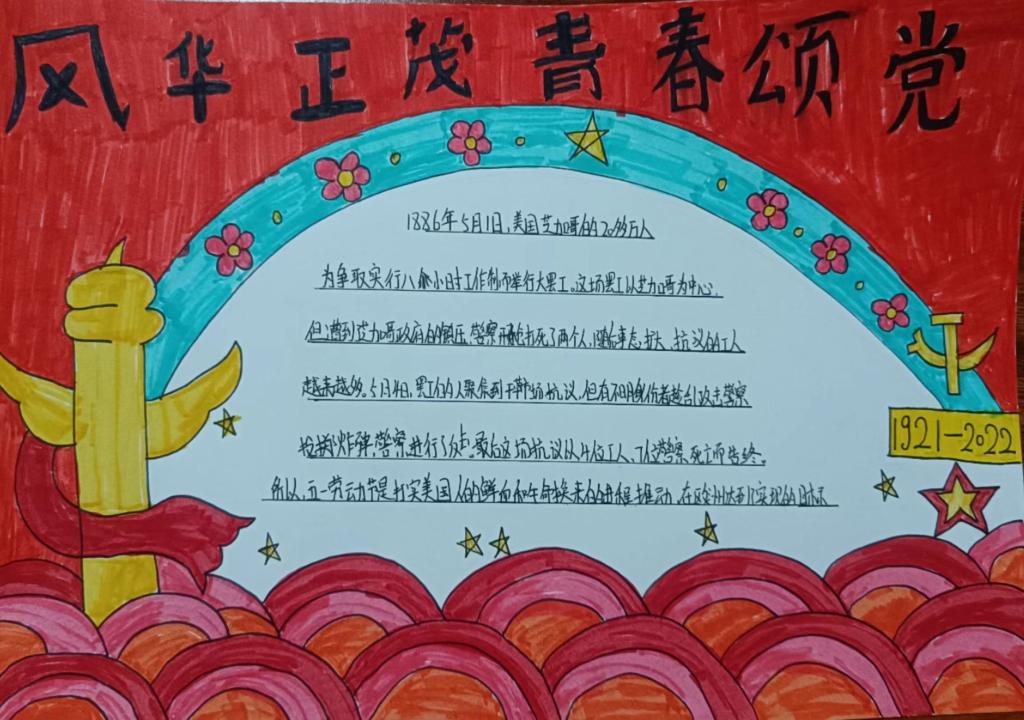 风华正茂青春颂党
1886年5月1日,美国芝加哥的20多万人
为争取实行八小时工作制而举行大罢工。这场罢工以芝加哥为中心.
但遭到芝加哥政府的镇压,警察开枪打死了两个人,随着事态扩大、抗议的工人
越来越多。5月4日,罢工的人聚集到干草市场抗议,但有不明身份者趁乱攻击警察
投掷炸弹,警察进行了反击,最后这场抗议以4位工人、7位警察死亡而告终。
所以,五一劳动节是美国人的鲜血和生命换来的,在欧洲实现的目标
1921-2022